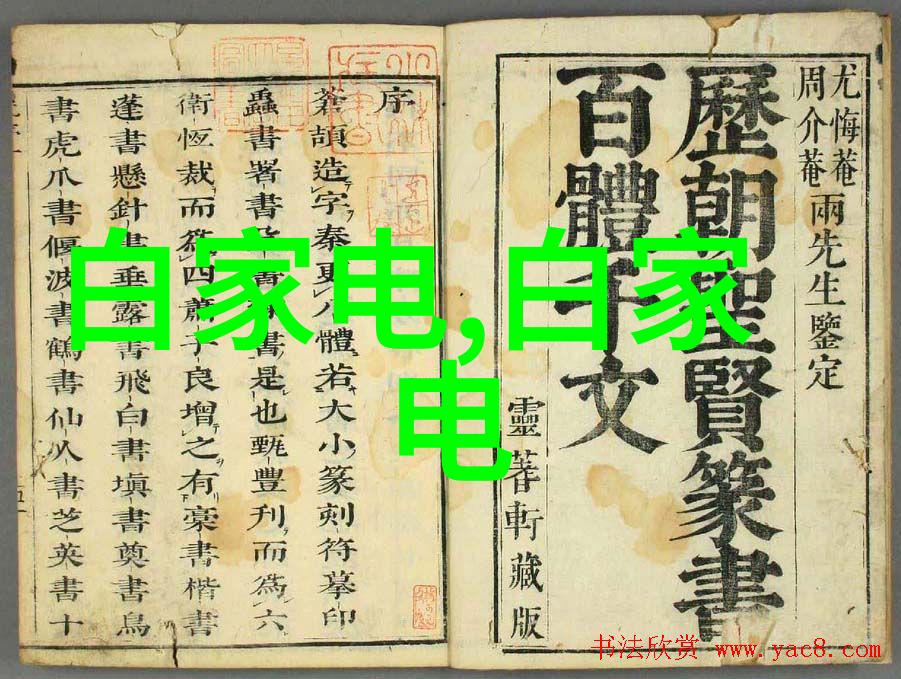 白家电,白家
电
尤悔菴
周介菴
兩先生鑒定
歷朝聖賢篆書
百體千文
靈蓍軒藏版
序
蒼頡造字秦更八體若大小篆刻符摹印
蟲書署書書書是也甄豐刋而為六
衛恆裁而為四蕭子良增之有稾書楷書
蓬書懸針書垂露書飛白書塡書奠書鳥
書虎爪書偃波書鶴書仙人書芝英書十
书法欣赏 www.yac8.com